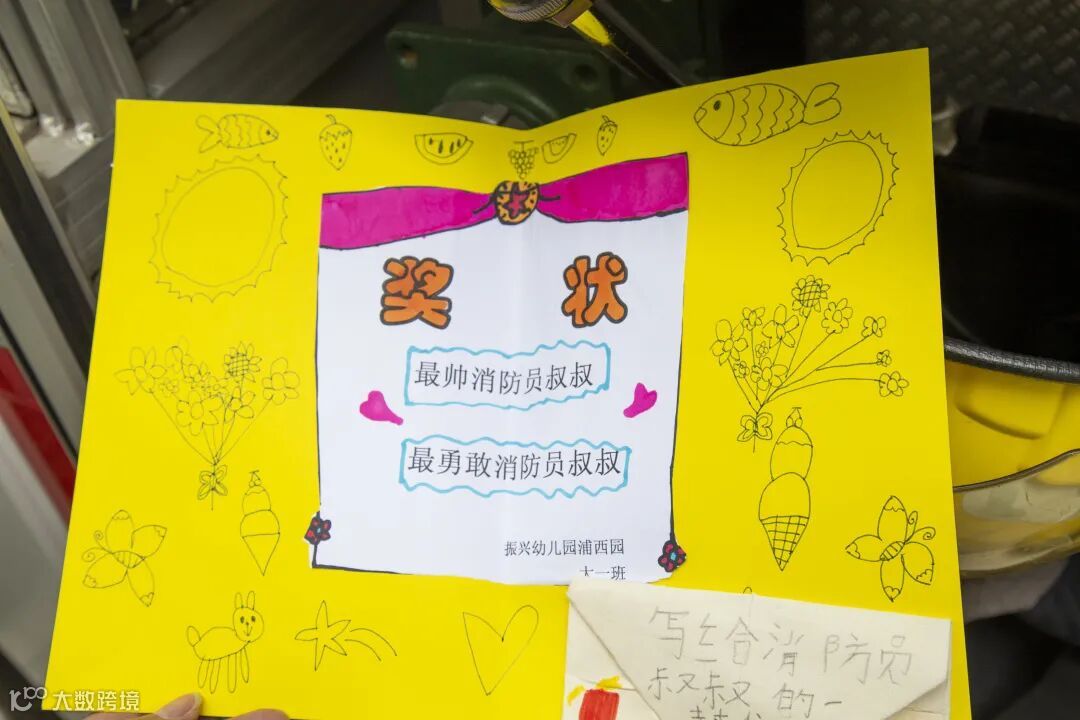 奖 状
最帅消防员叔叔
最勇敢消防员叔叔
振兴幼儿园浦西园
大一班
写给消防员
叔叔的一
大数跨境